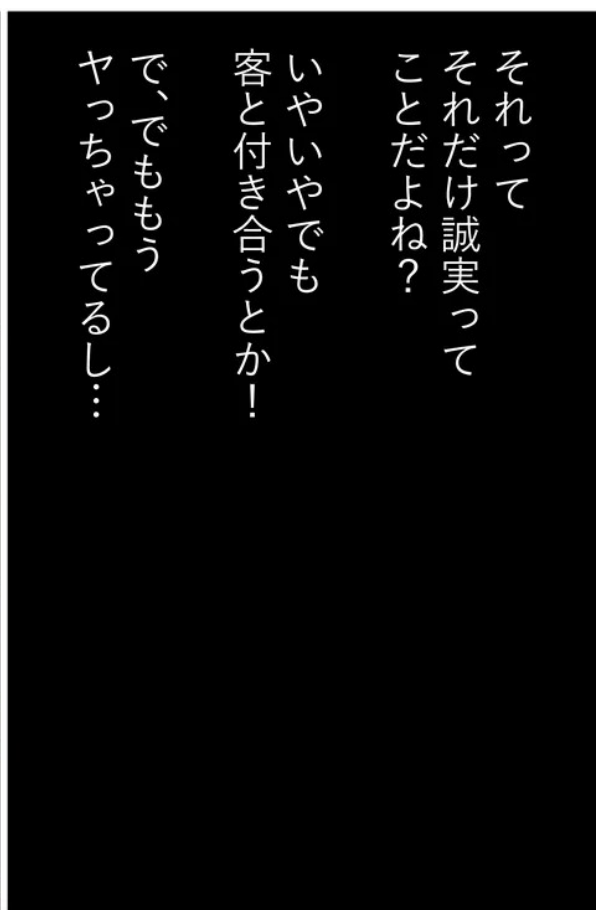 それって
それだけ誠実って
ことだよね?
いやいやでも
客と付き合うとか!
で、でももう
ヤっちゃってるし…